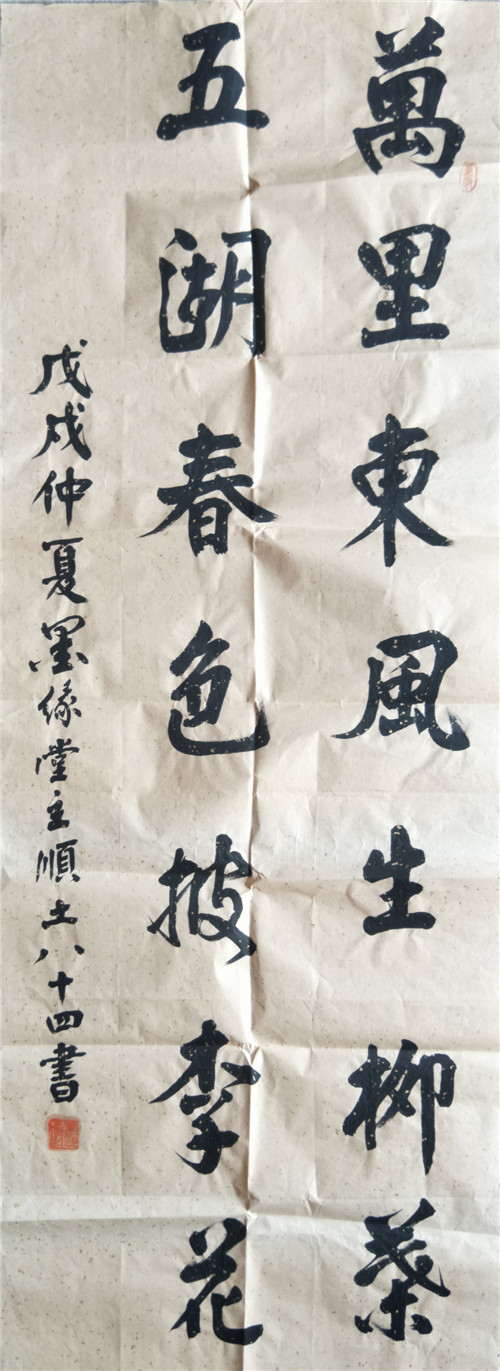 萬里東風生柳葉
五湖春色披李花
戊戌仲夏墨緣堂主順土八十四書